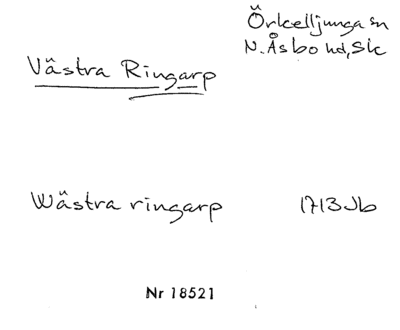 Örkelljunga sn
N. Åsbo hd, Sk
Västra Ringarp
Wästra ringarp 1713 Jb
Nr 18521